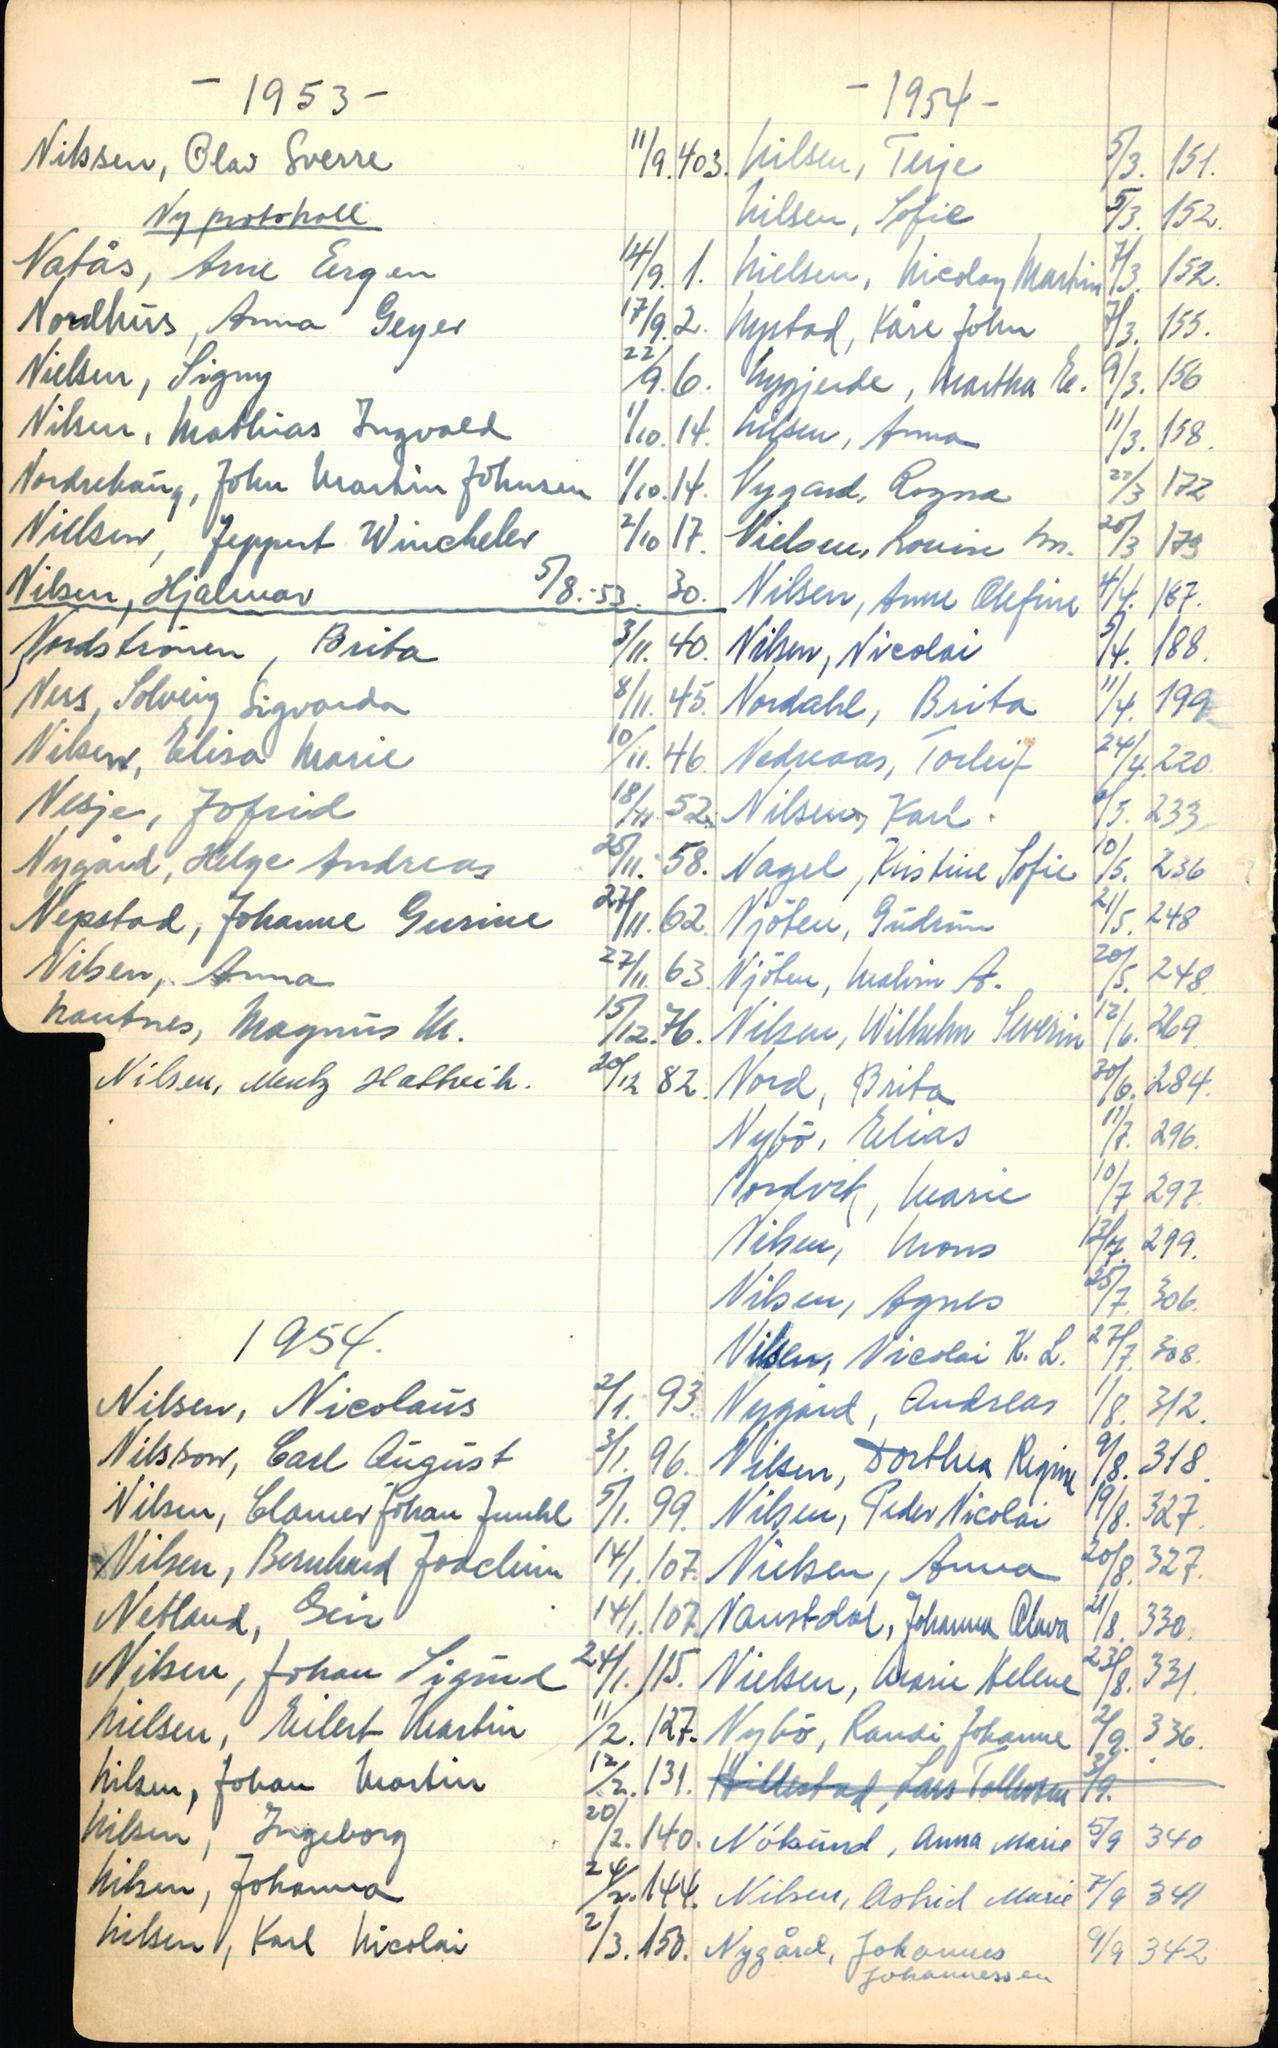 - 1953 -
Nilssen, Olav Sverre 11/9. 403.
Ny protokoll
Natås, Arne Eirgen 14/9. 1.
Nordhus, Anna Geyer 17/9. 2.
Nielsen, Signy 22/9. 6.
Nilsen, Mathias Ingvald 1/10. 14.
Nordrehaug, John Martin Johnsen 1/10. 14.
Nielsen, Jeppert Wincheler 2/10 17.
Nilsen, Hjalmar 5/8.-53. 30.
Nordströnen, Brita 3/11. 40.
Ness, Solveig Sigvarda 8/11. 45.
Nilsen, Elisa Marie 10/11. 46.
Nesje, Jofrid 18/11. 52.
Nygård, Helge Andreas 25/11. 58.
Nepstad, Johanne Gurine 27/11. 62.
Nilsen, Anna 27/11. 63.
Nautnes, Magnus M. 15/12. 76.
Nilsen, Mentz Hattveih. 20/12 82.
1954.
Nilsen, Nicolaus 2/1. 93.
Nilsson, Carl August 3/1. 96.
Nilsen, Clamer Johan Juuhl 5/1. 99.
Nilsen, Bernhard Joachim 14/1. 107.
Netland, Geir 14/1. 107.
Nilsen, Johan Sigurd 24/1. 115.
Nielsen, Eilert Martin 11/2. 127.
Nilsen, Johan Martin 12/2. 131.
Nilsen, Ingeborg 20/2. 140.
Nilsen, Johanna 24/2. 144.
Nilsen, Karl Nicolai 2/3. 150.
- 1954 -
Nilsen, Terje 5/3. 151.
Nilsen, Sofie 5/3. 152.
Nielsen, Nicolay Martin 7/3. 152.
Nystad, Kåre John 7/3. 155.
Nygjerde, Martha E. 9/3. 156
Nilsen, Anna 11/3. 158.
Nygard, Ragna 22/3 172
Nielsen, Louise M. 20/3 173
Nilsen, Anne Olefine 4/4. 187.
Nilsen, Nicolai 5/4. 188.
Nordahl, Brita 11/4. 199
Nedreaas, Torleif 24/4. 220.
Nilsen, Karl /5. 233
Nagel, Kristine Sofie 10/5. 236
Njöten, Gudrun 21/5. 248
Njöten, Malvin A. 20/5. 248.
Nilsen, Wilhelm Severin 12/6. 269.
Nord, Brita 30/6. 284.
Nybö, Elias 11/7. 296.
Nordvik, Marie 10/7 297.
Nilsen, Mons 13/7. 299.
Nilsen, Agnes 25/7. 306.
Nilsen, Nicolai K. L. 27/7. 308.
Nygård, Andreas 1/8. 312.
Nilsen, Dorthea Regine 9/8. 318.
Nilsen, Peder Nicolai 19/8. 327.
Nielsen, Anna 20/8. 327.
Naustdal, Johanna Olava 21/8. 330.
Nielsen, Marie Helene 23/8. 331.
Nybö, Randi Johanne 2/9. 336.
Hillestad, Lars Tollevsen 3/9.
Nöksund, Anna Marie 5/9 340
Nilsen, Astrid Marie 7/9 341
Nygård, Johannes 9/9 342
Johannessen